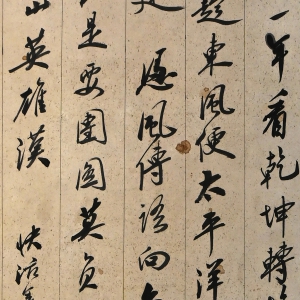 一年看乾坤轉
趁東風便太平洋
憑風傳語向
是要團圓莫負
英雄漢
快活